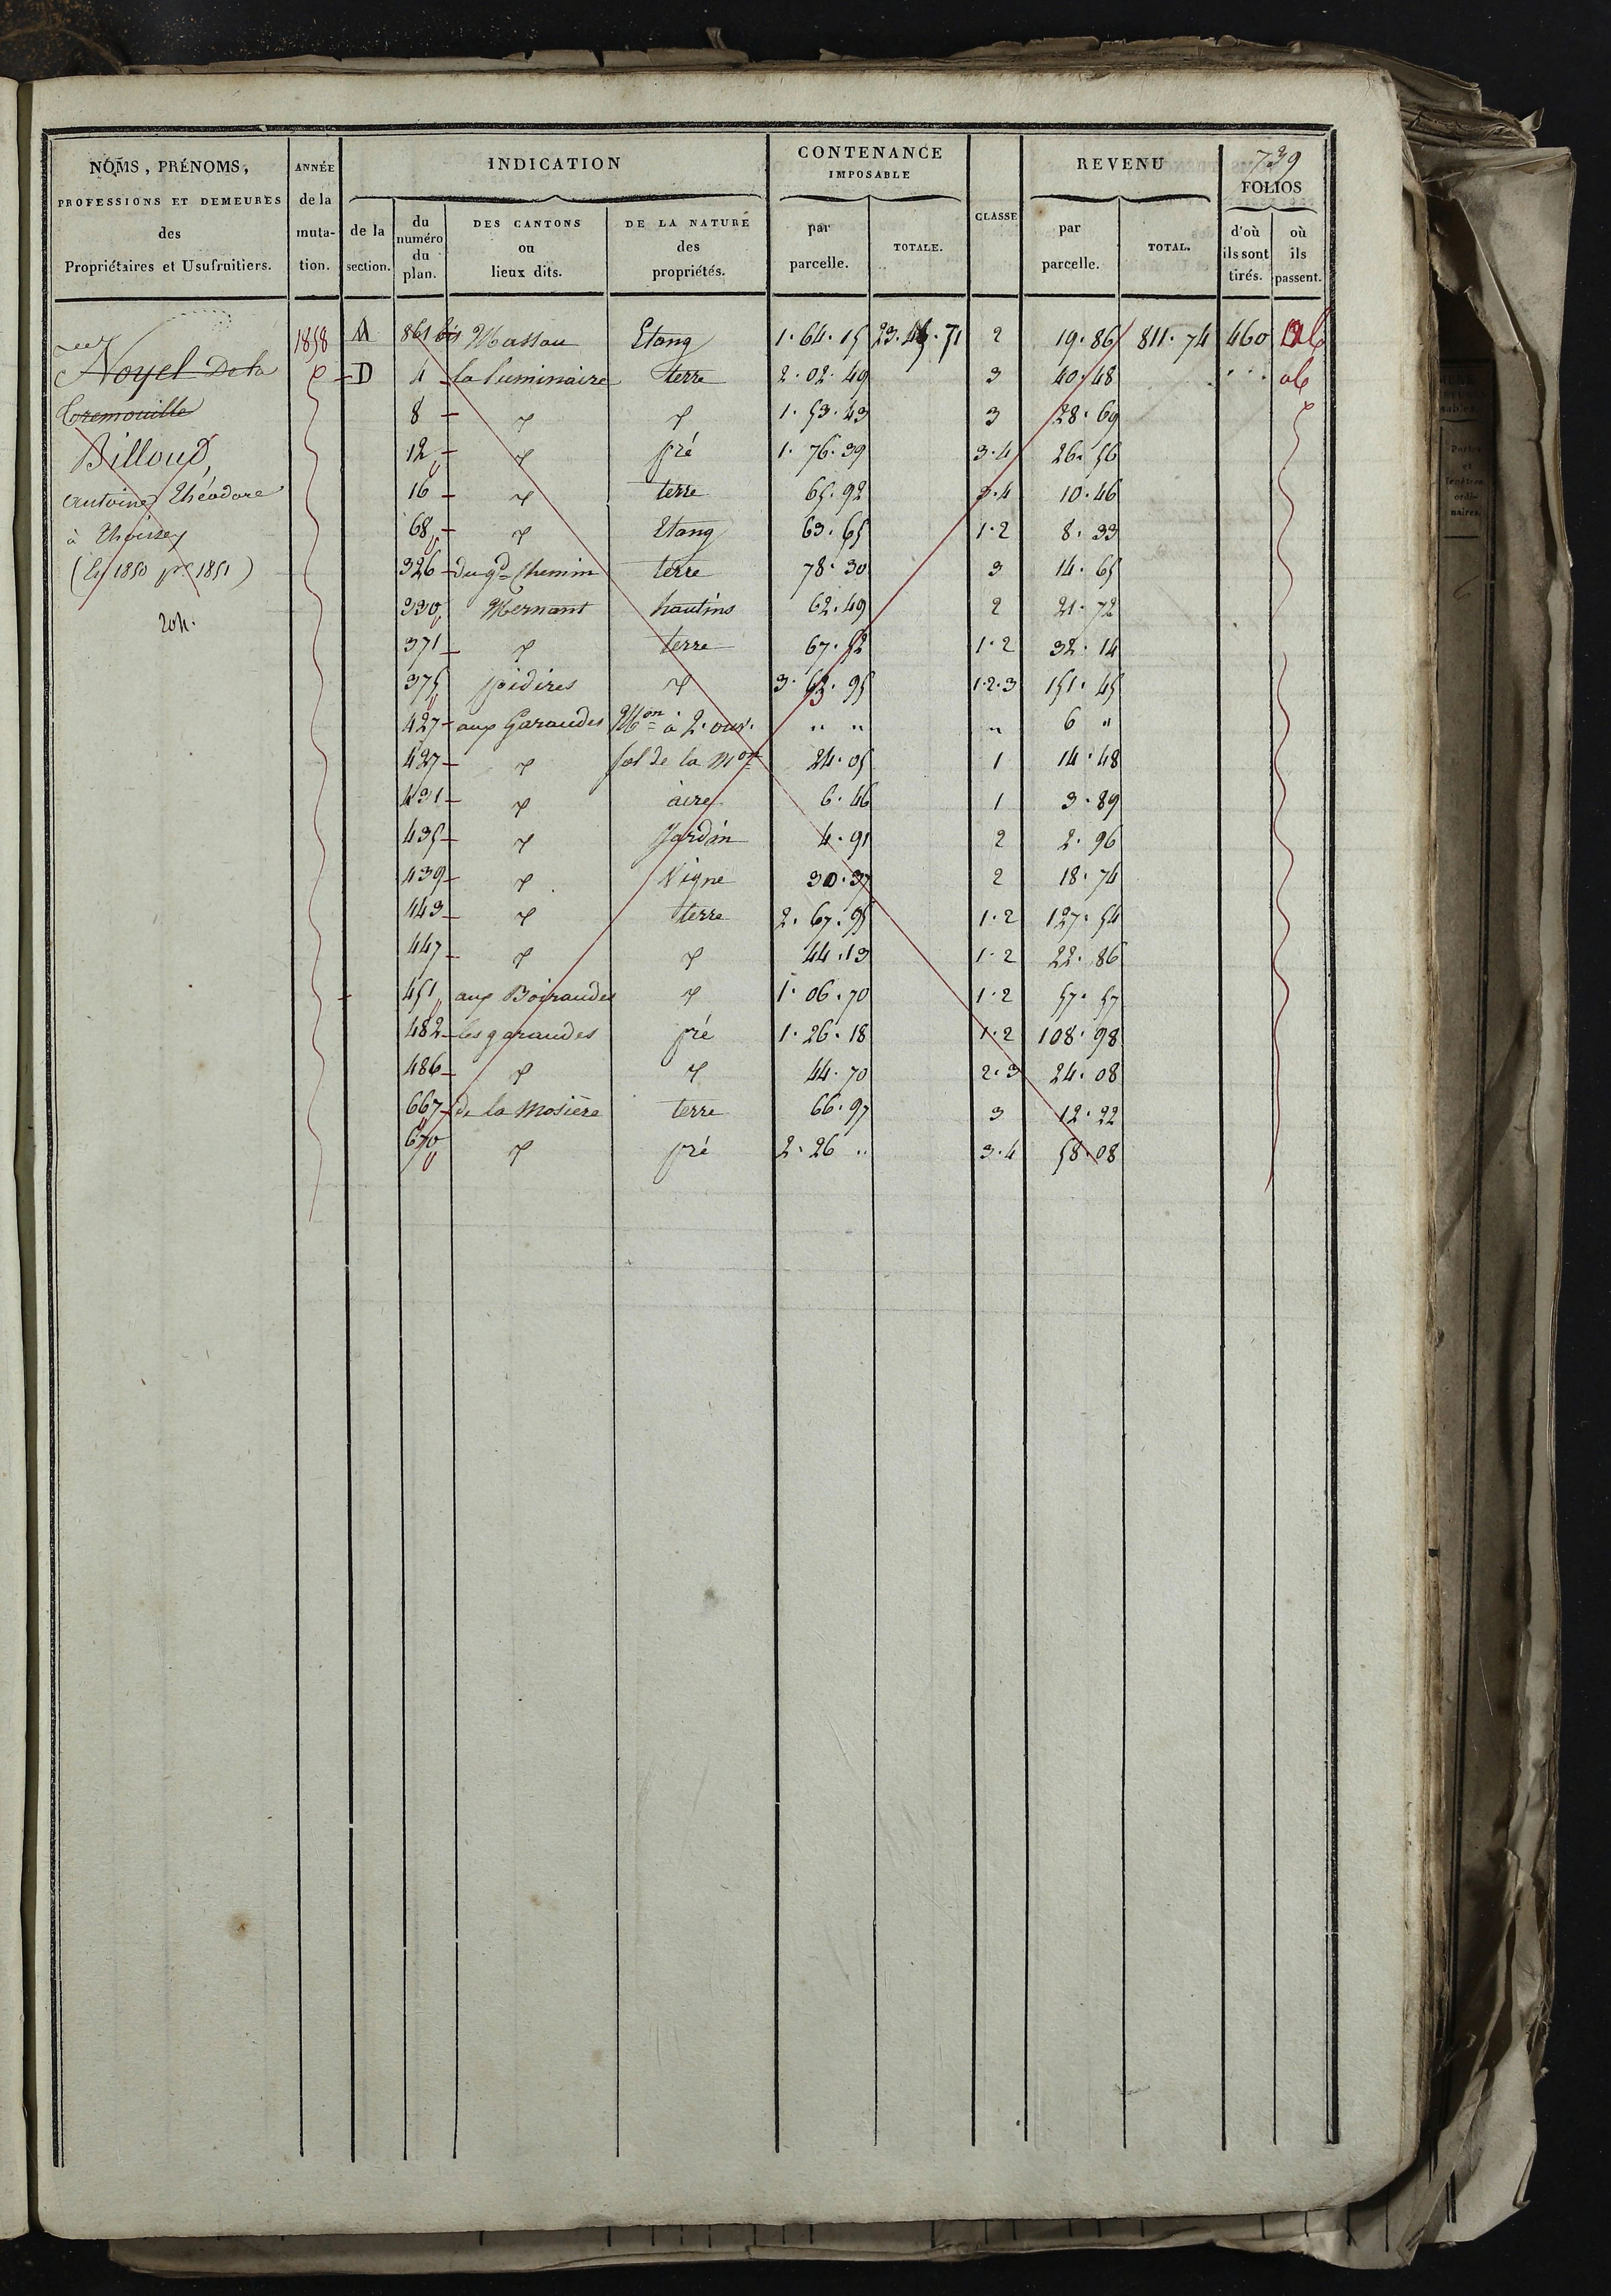 739
NOMS, PRÉNOMS, PROFESSIONS ET DEMEURES des Propriétaires et Usufruitiers.
ANNÉE de la muta-tion.
INDICATION
de la section.
du numéro du plan.
DES CANTONS ou lieux dits.
DE LA NATURE des propriétés.
CONTENANCE IMPOSABLE
par parcelle.
TOTALE.
CLASSE
REVENU
par parcelle.
TOTAL.
FOLIOS
d'où ils sont tirés.
où ils passent.
Noyel De la
Tremouille
Billoud,
Antoine Théodore
à Thoissey
(1850 pr 1851)
1858 M 861 bis Massau Etang 1.64.15 23.45.71 2 19.86 811.74 460
D 4 la luminaire terre 2.02.49 3 40.48
8 " " 1.53.43 3 28.69
12 " pré 1.76.39 3.4 26.56
16 " terre 65.92 3.4 10.46
68 " Etang 63.65 1.2 8.33
326 du gd Chemin terre 78.30 3 14.65
330 Mernant hautins 62.49 2 21.72
371 " terre 67.52 1.2 32.14
375 pidires " 3.63.95 1.2.3 151.45
427 aux Garaudes Mon à 2. ouv. " " " 6 "
427 " sol de la Mon 24.05 1 14.48
431 " aire 6.46 1 3.89
435 " Jardin 4.91 2 2.96
439 " Vigne 30.37 2 18.74
443 " terre 2.67.95 1.2 127.54
447 " " 44.13 1.2 22.86
451 aux Boiraudes " 1.06.70 1.2 57.57
482 les garaudes pré 1.26.18 1.2 108.98
486 " " 44.70 2.3 24.08
667 de la Mosière terre 66.97 3 12.22
670 " pré 2.26 " 3.4 58.08